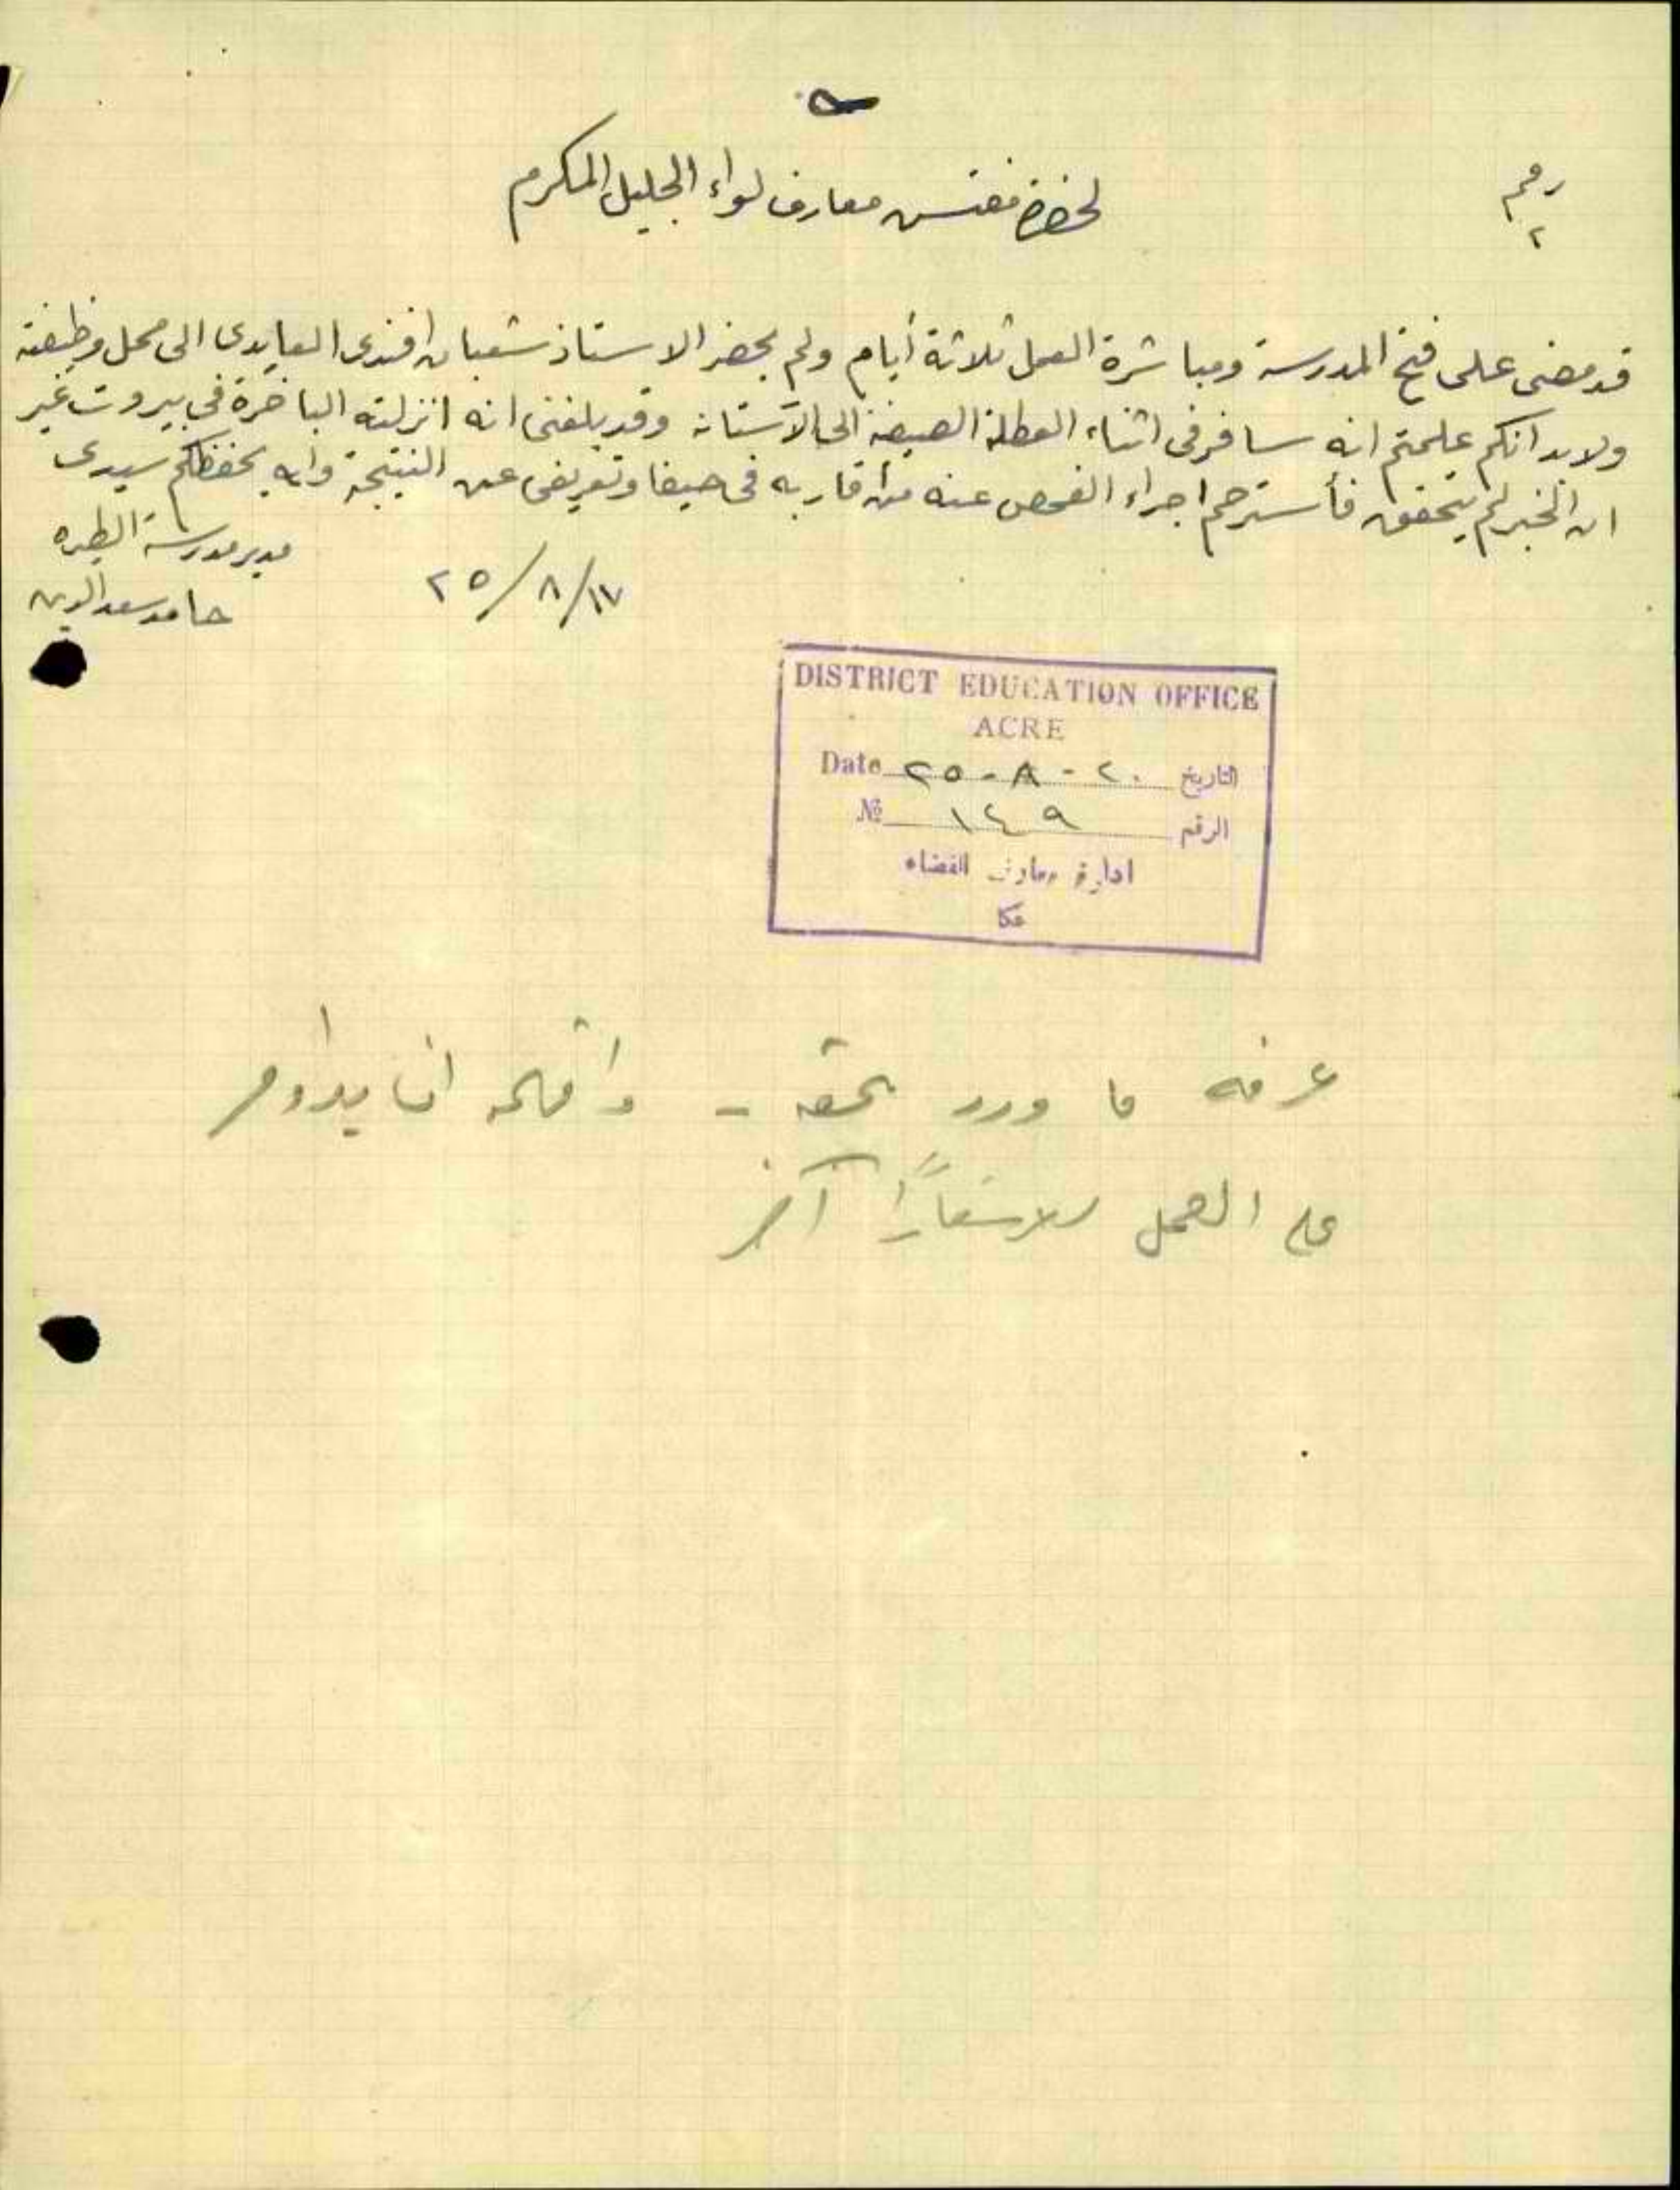 رقم
٢
لحضرة مفتش معارف لواء الجليل المكرم
قد مضى على فتح المدرسة ومباشرة العمل ثلاثة أيام ولم يحضر الاستاذ شعبان افندى العايدى الى محل وظيفته
ولابد انكم علمتم انه سافر فى اثناء العطلة الصيفية الى الآستانة وقد بلغنى انه انزلته الباخرة في بيروت غير
ان الخبر لم يتحقق فأسترحم اجراء الفحص عنه من أقاربه فى حيفا وتعريفى عن النتيجة والله يحفظكم سيدى
مدير مدرسة الطيره
١٧/٨/٢٥
حامد سعد الدين
DISTRICT EDUCATION OFFICE
ACRE
Date ٢٠-٨-٢٥ التاريخ
№ ١٤٩ الرقم
ادارة معارف القضاء
عكا
عرفه ما ورد بحقه - و ان يداوم
على العمل آخر